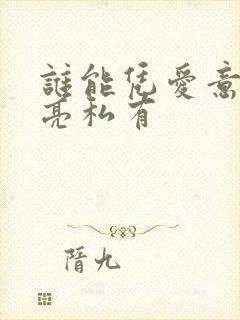 誰能凭愛意
亮私有
隋九